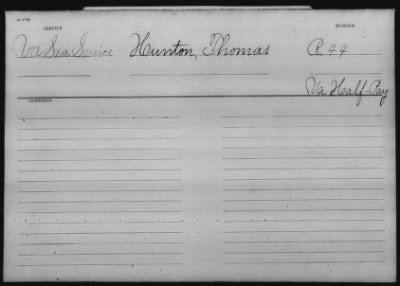 SERVICE NUMBER
Va Sea Service Hunton, Thomas R. 44
Va Half Pay
CONTENTS